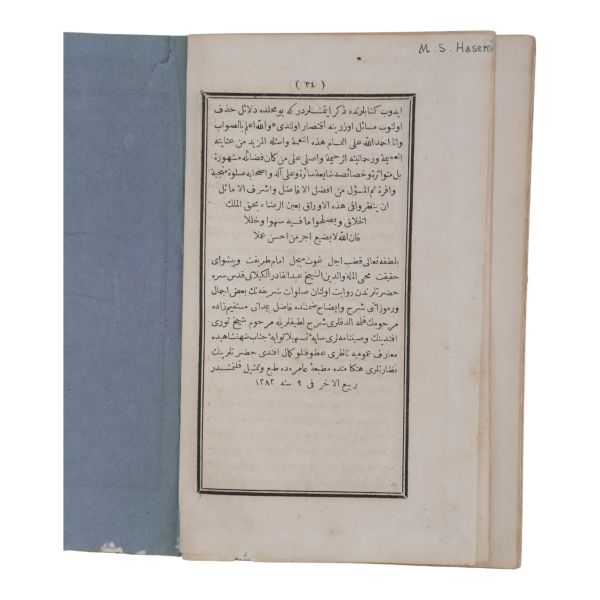 M. S. Haseki
( ٣٤ )
ايدوب كتابلرنده ذكر ايتمشلردر كه بو محلده دلائل حذف
اولنوب مسائل اوزرينه اقتصار اولندى * والله اعلم بالصواب
وانا احمد الله على اتمام هذه النعمة واسئله المزيد من عنايته
العميمة ورحمانيته الرحيمة واصلى على من كان فضائله مشهورة
بل متواترة وخصائصه شايعة سائرة وعلى آله واصحابه صلوة منجية
وافرة ثم المسؤل من افضل الافاضل واشرف الاماثل
ان ينظروا فى هذه الاوراق بعين الرضاء بحق الملك
الخلاق ويصلحوا ما فيه سهوا وخللا
فان الله لا يضيع اجر من احسن عملا
بلطفه تعالى قطب اجل غوث مبجل امام طريقت وپيشواى
حقيقت محيى الملة والدين الشيخ عبد القادر الكيلانى قدس سره
حضرتلرندن روايت اولنان صلوات شريفه نك بعض اجمال
ورموزاتى شرح وايضاح ضمننده فاضل مستقيم زاده
مرحومك قلمه الدقلرى شرح لطيفلريله مرحوم شيخ نورى
افندينك وصيتنامه لرى سايه تسهيلاتوايه جناب شهنشاهيده
معارف عموميه ناظرى عطوفتلو كمال افندى حضرتلرينك
نظارتلرى هنكامنده مطبعه عامره ده طبع وتمثيل قلنمشدر
ربيع الاخر فى ٩ سنه ١٢٨٢